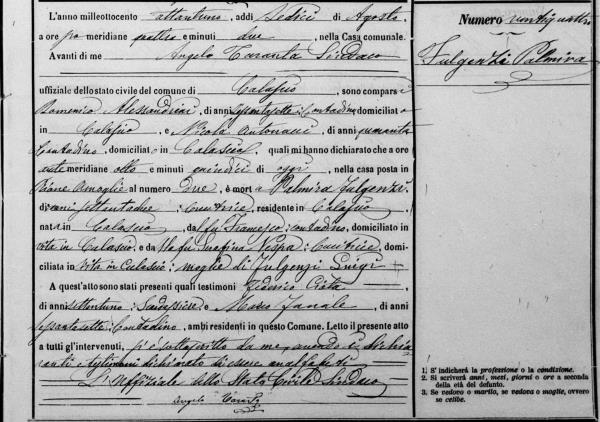 L'anno milleottocento ottantuno, addì Sedici di Agosto
a ore po meridiane quattro e minuti due, nella Casa comunale.
Avanti di me Angelo Taranta Sindaco
uffiziale dello stato civile del comune di Calascio, sono comparsi
Domenico Alessandrini, di anni sessantasette: Contadino domiciliato
in Calascio, e Nicola Antonacci, di anni quaranta
Contadino, domiciliato in Calascio, quali mi hanno dichiarato che a ore
ante meridiane otto e minuti quindici di oggi, nella casa posta in
al numero due, è morta Palmira Fulgenzi
di anni settantadue: Cucitrice, residente in Calascio,
nata in Calascio, da fu Francesco: contadino, domiciliato in
vita in Calascio, e da fu Serafina Nespa: Cucitrice, domi-
ciliata in vita in Calascio: moglie di Fulgenzi Luigi
A quest'atto sono stati presenti quali testimoni Federico
di anni settantuno: e Marco, di anni
sessantasette: Contadino, ambi residenti in questo Comune. Letto il presente atto
a tutti gl'intervenuti, si è sottoscritto da me, avendo i dichia
ranti e testimoni dichiarato di essere analfabeti
L'Uffiziale dello Stato Civile Sindaco
Angelo Taranta
Numero ventiquattro
Fulgenzi Palmira
1. S'indicherà la professione o la condizione.
2. Si scriverà anni, mesi, giorni o ore a seconda
della età del defunto.
3. Se vedovo o marito, se vedova o moglie, ovvero
se celibe.